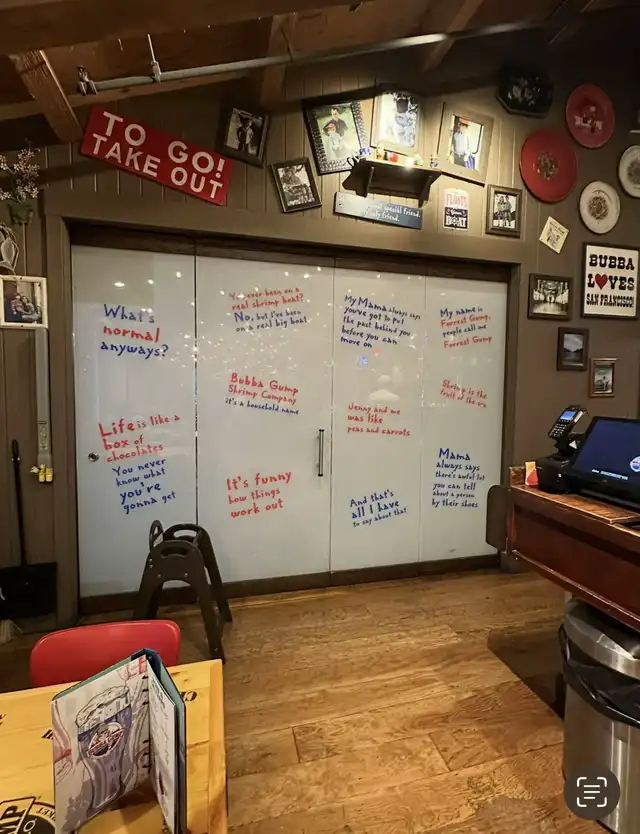 TO GO!
TAKE OUT
BUBBA
L VES
SAN FRANCISCO
FLOATS
BOAT
special friend.
What's
normal
anyways?
Life is like a
box of
chocolates
You never
know what
you're
gonna get
You ever been on a
real shrimp boat?
No, but I've been
on a real big boat
Bubba Gump
Shrimp Company
it's a household name
It's funny
how things
work out
My Mama always says
you've got to put
the past behind you
before you can
move on
Jenny and me
was like
peas and carrots
And that's
all I have
to say about that
My name is
Forrest Gump,
people call me
Forrest Gump
Shrimp is the
fruit of the sea
Mama
always says
there's awful lot
you can tell
about a person
by their shoes